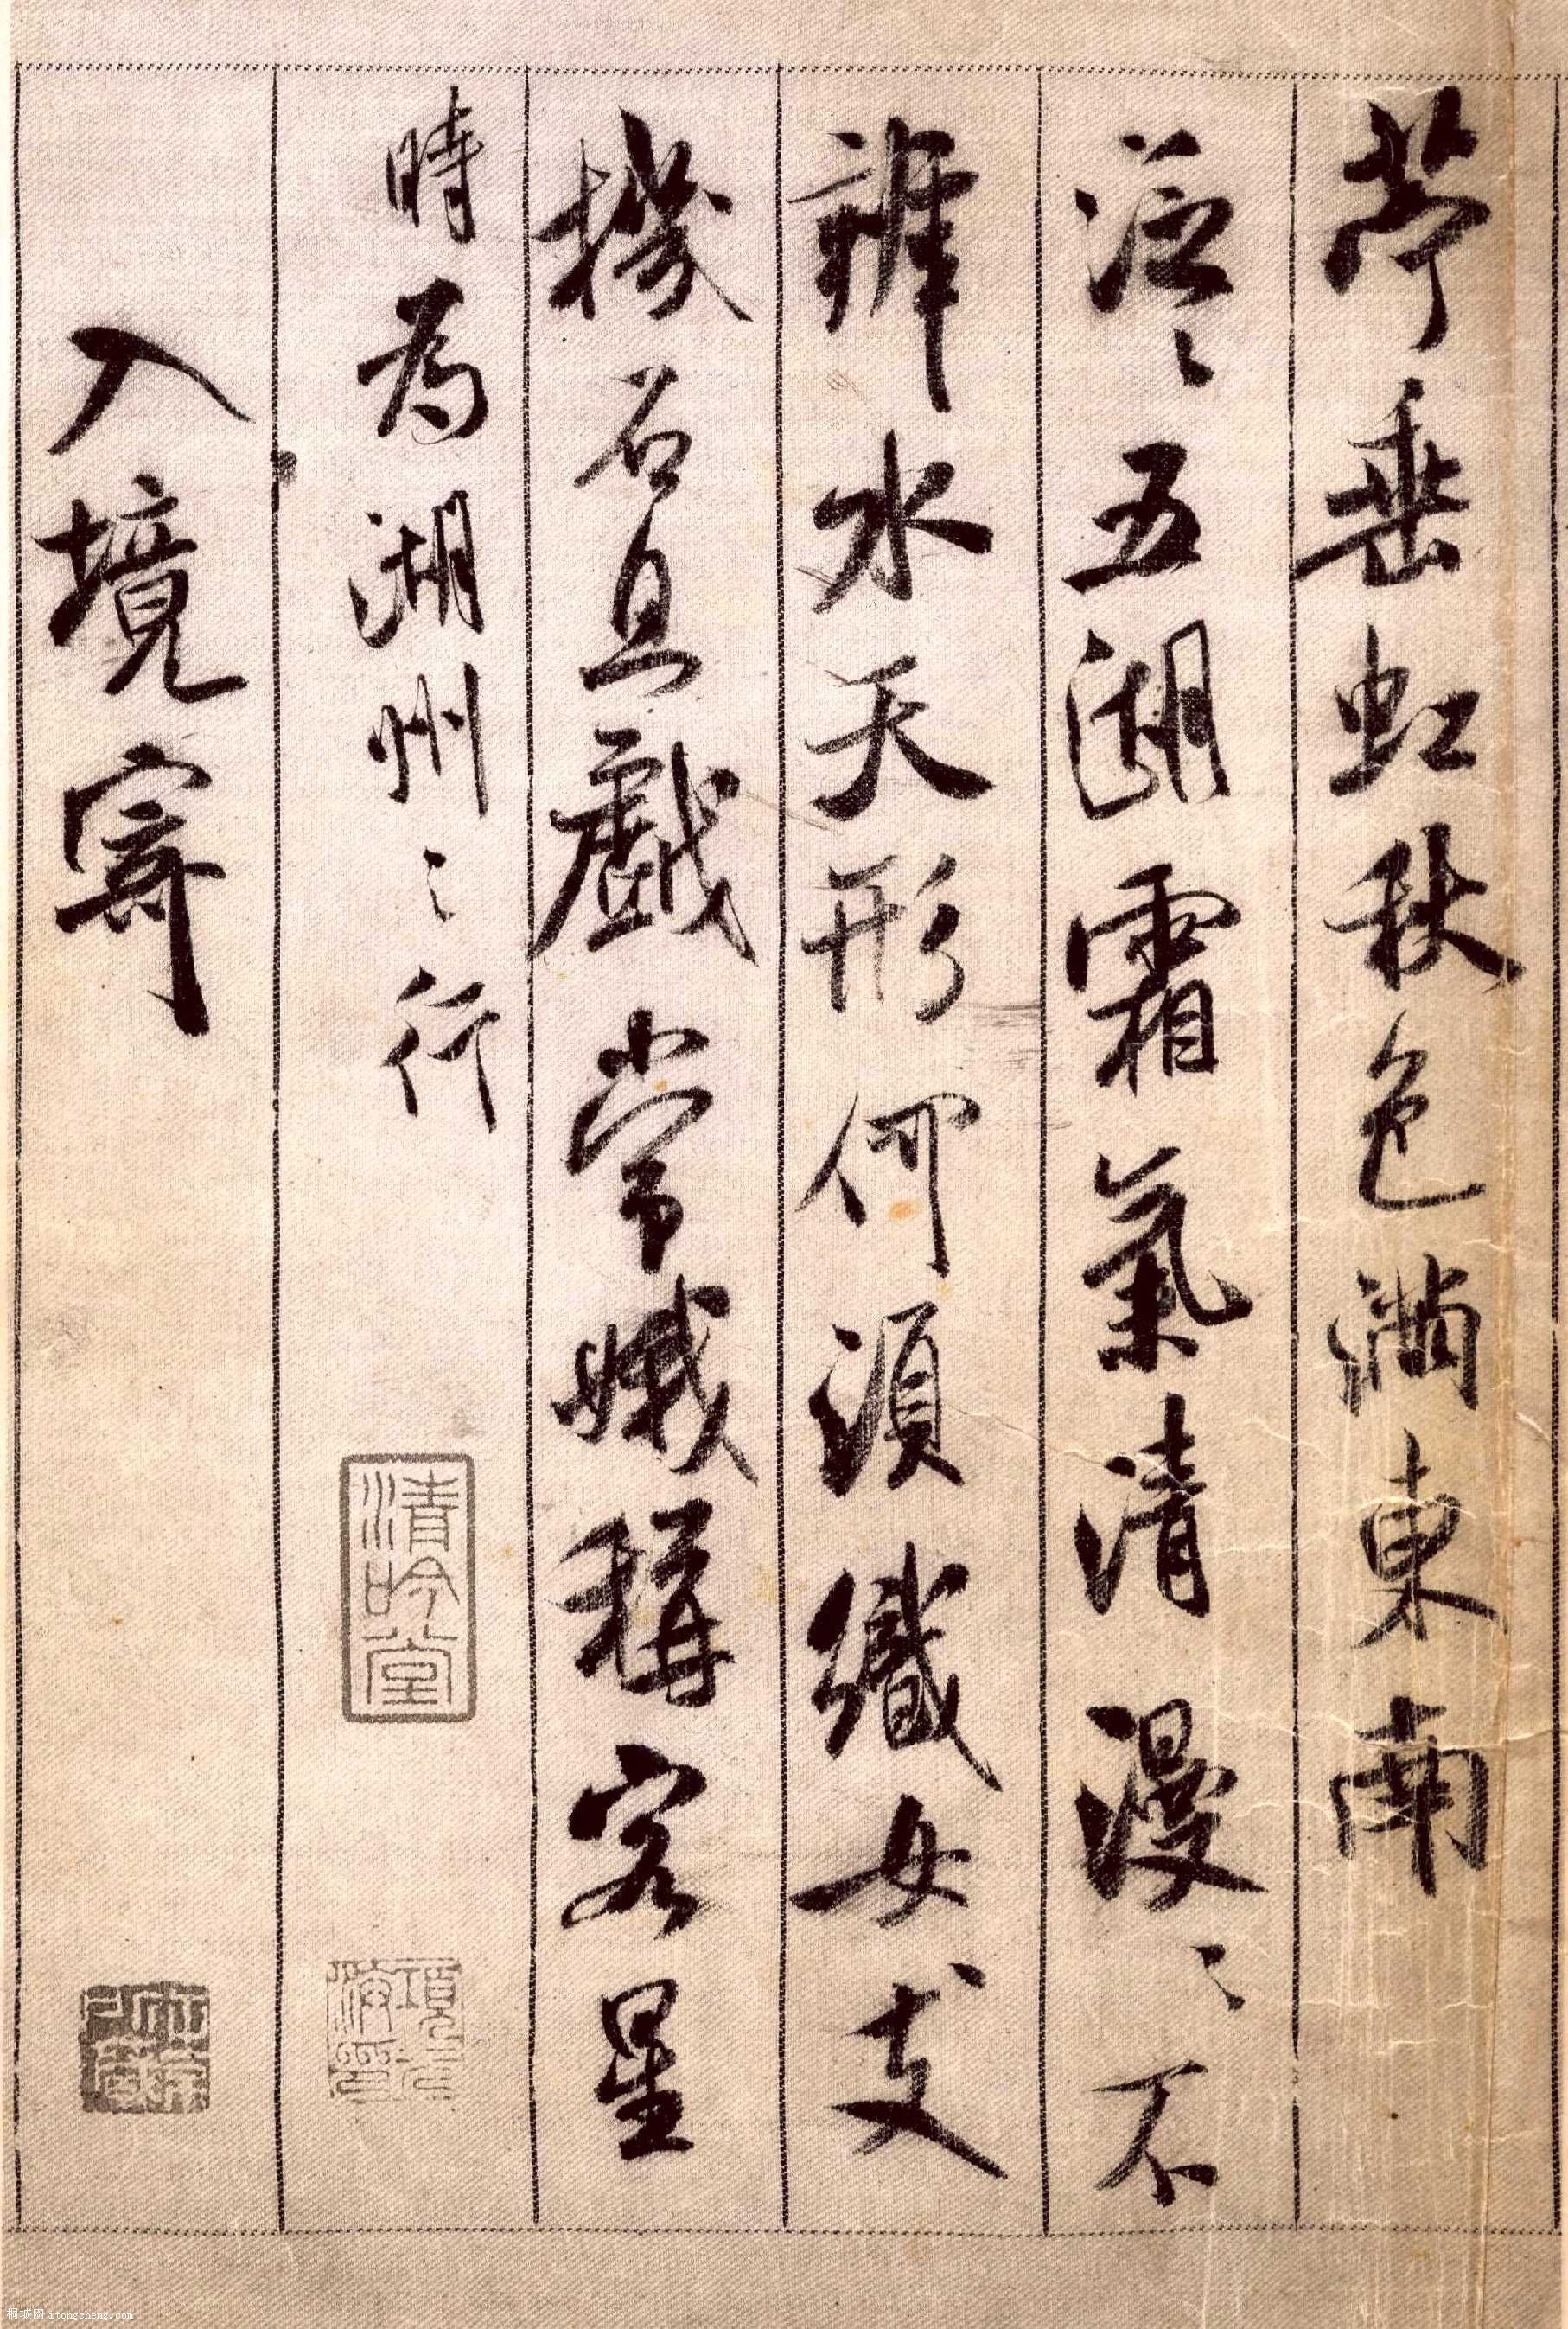 苧垂虹秋色滿東南
泛〻五湖霜氣清漫〻不
辨水天形何須織女支
機石且戲常娥稱客星
時為湖州之行
清吟堂
項元汴印
入境寄
桐城网 itongcheng.com